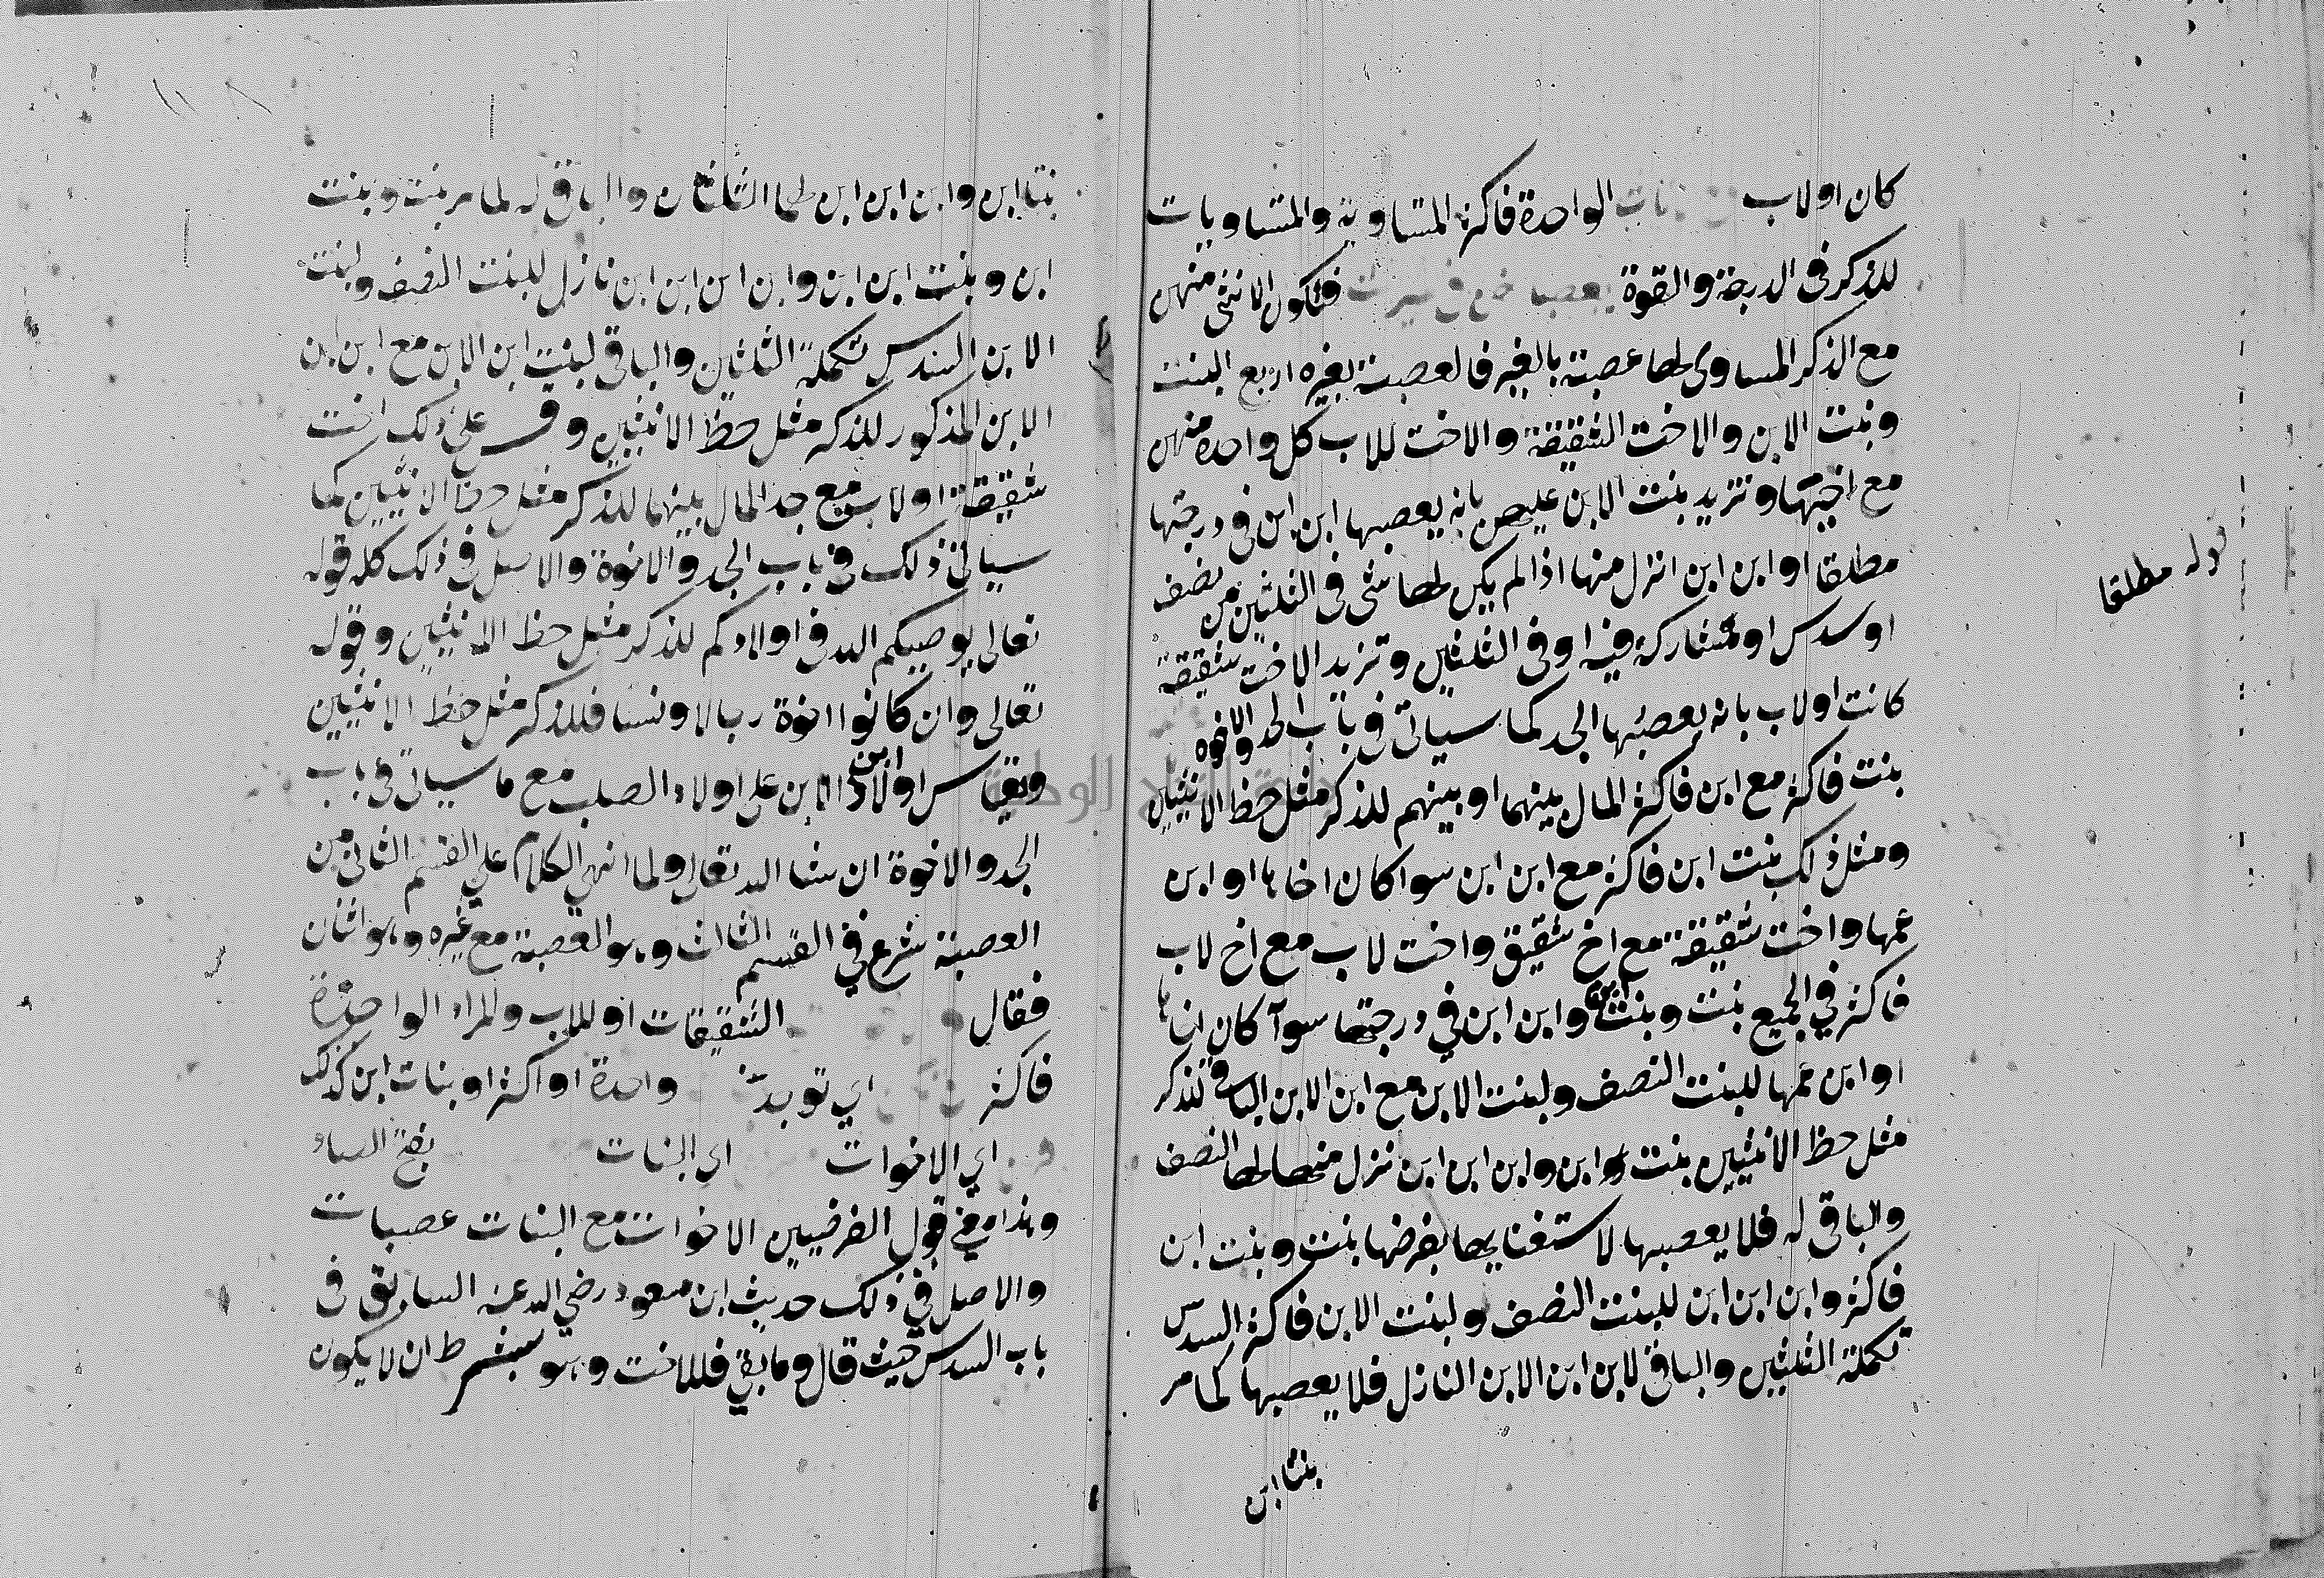 كان او لاب الواحدة فاكثر المتساوية والمتساويات
للذكر في الدرجة والقوة فتكون الانثى منهن
مع الذكر المساوى لها عصبة بالغير فالعصبة بغيره اربع البنت
وبنت الابن والاخت الشقيقة والاخت للاب كل واحدة منهن
مع اخيها وتزيد بنت الابن عليهن بانه يعصبها ابن ابن في درجتها
مطلقا او ابن ابن انزل منها اذا لم يكن لها شى في الثلثين من نصف
او سدس او مشاركة فيه او في الثلثين وتزيد الاخت شقيقة
كانت او لاب بانه يعصبها الجد كما سياتي في باب الجد والاخوة
بنت فاكثر مع ابن فاكثر المال بينهما او بينهم للذكر مثل حظ الانثيين
ومثل ذلك بنت ابن فاكثر مع ابن ابن سوا كان اخاها او ابن
عمها واخت شقيقة مع اخ شقيق واخت لاب مع اخ لاب
فاكثر في الجميع بنت وبنت ابن وابن ابن في درجتها سوآ كان اخاها
او ابن عمها للبنت النصف ولبنت الابن مع ابن الابن الباقى للذكر
مثل حظ الانثيين بنت وابن ابن ابن نزل منها لها النصف
والباقى له فلا يعصبها لاستغنايها بفرضها بنت وبنت ابن
فاكثر وابن ابن ابن للبنت النصف ولبنت الابن فاكثر السدس
تكملة الثلثين والباقى لابن ابن الابن النازل فلا يعصبها كما مر
بنتا ابن
قوله مطلقا
بنتا ابن وابن ابن ابن لهما الثلثان والباقى له لما مر بنت وبنت
ابن وبنت ابن ابن وابن ابن ابن ابن نازل للبنت النصف ولبنت
الابن السدس تكملة الثلثين والباقى لبنت ابن الابن مع ابن ابن
الابن المذكور للذكر مثل حظ الانثيين وقس على ذلك اخت
شقيقة او لاب مع جد المال بينهما للذكر مثل حظ الانثيين كما
سياتى ذلك في باب الجد والاخوة والاصل في ذلك كله قوله
تعالى يوصيكم الله في اولادكم للذكر مثل حظ الانثيين وقوله
تعالى وان كانوا اخوة رجالا ونسا فللذكر مثل حظ الانثيين
ويقاس اولاد ابن الابن على اولاد الصلب مع ما سياتى في باب
الجد والاخوة ان شا الله تعالى ولما انهى الكلام على القسم الثانى من
العصبة شرع في القسم الثالث وهو العصبة مع غيره وهو اثنان
فقال الشقيقات او للاب والمراد الواحدة
فاكثر اي توجد واحدة او اكثر او بنات ابن كذلك
اي الاخوات اى البنات بفتح الصاد
وهذا معنى قول الفرضيين الاخوات مع البنات عصبات
والاصل في ذلك حديث ابن مسعود رضي الله عنه السابق في
باب السدس حيث قال وما بقي فللاخت وهو بشرط ان لا يكون